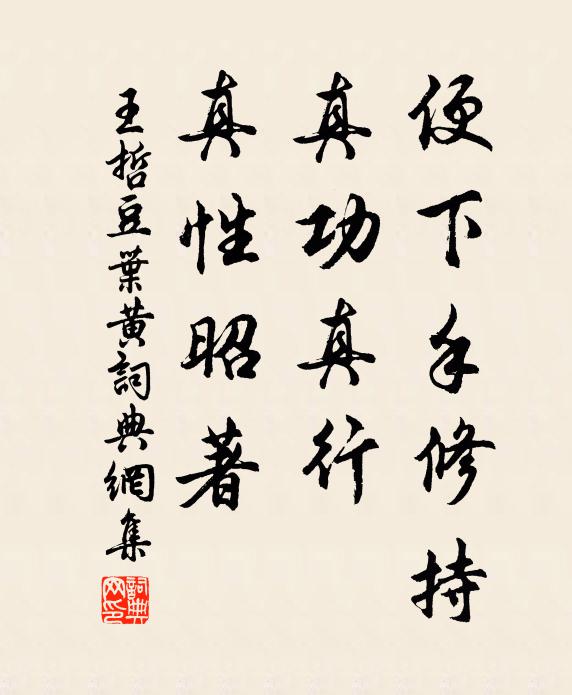 便下手修持
真功真行
真性昭著
王哲豆葉黃詞典網集
詞典网印